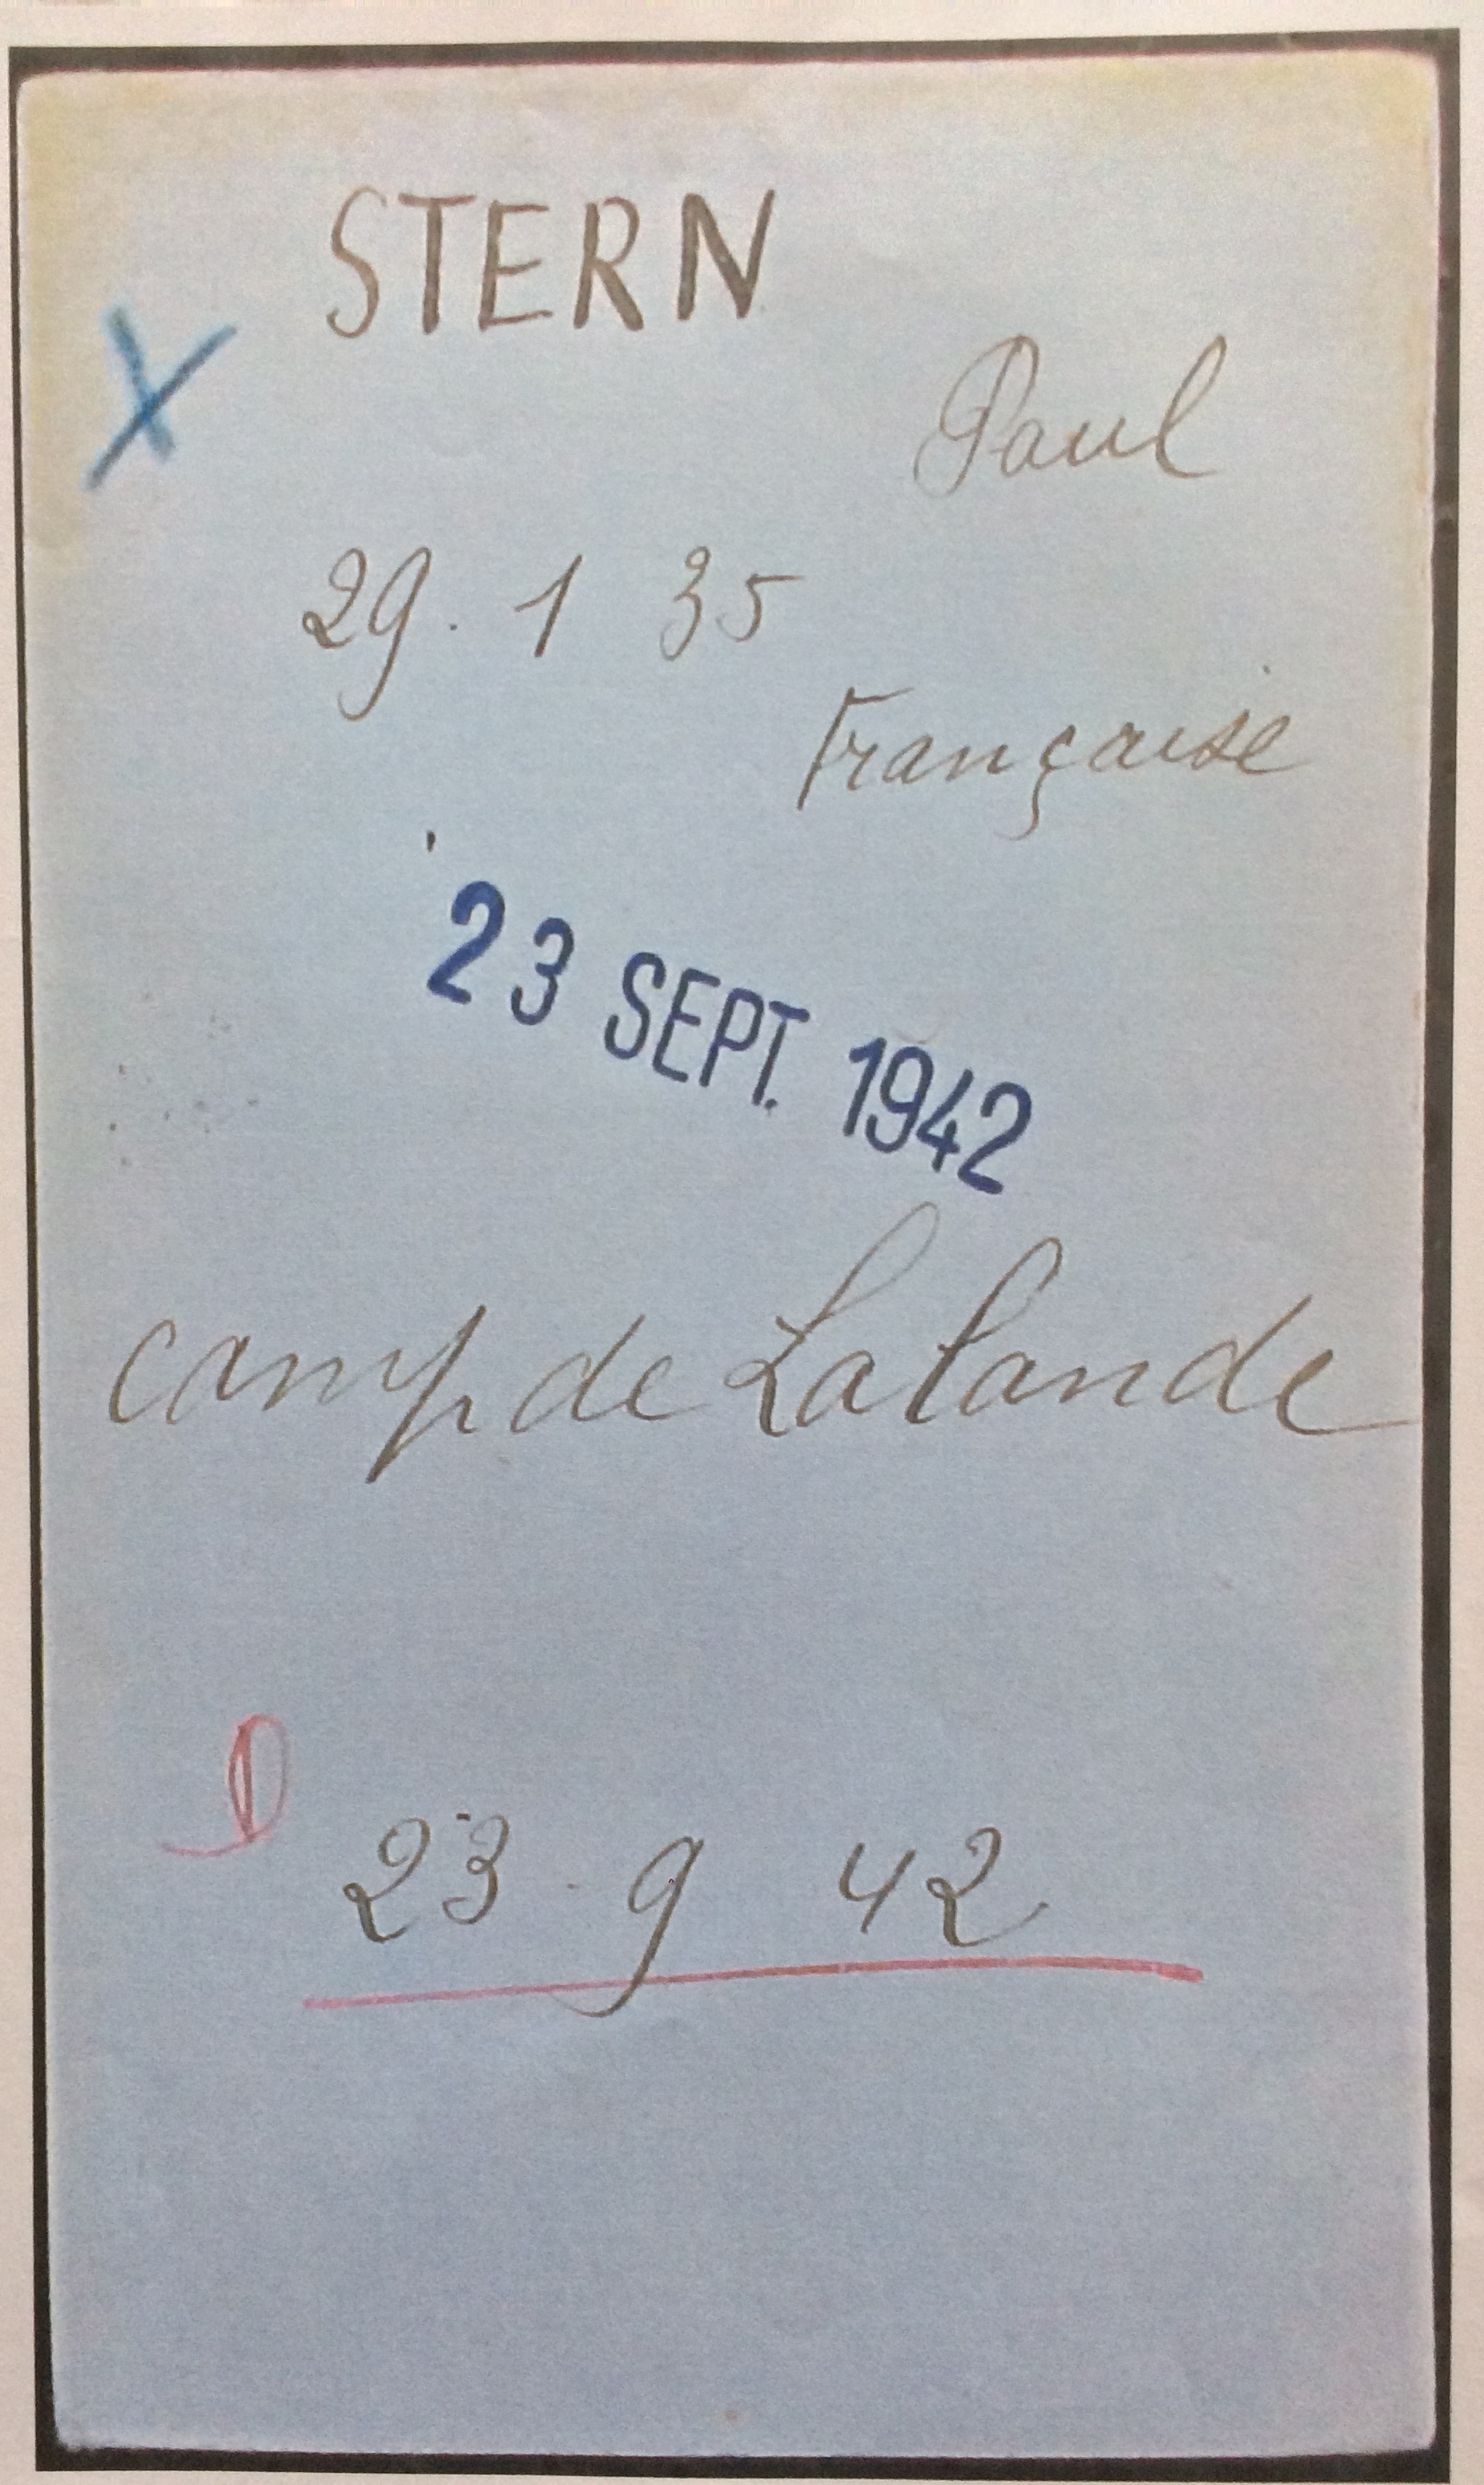 STERN
X
Paul
29. 1 35
Française
23 SEPT. 1942
camp de La Lande
D
23. 9 42